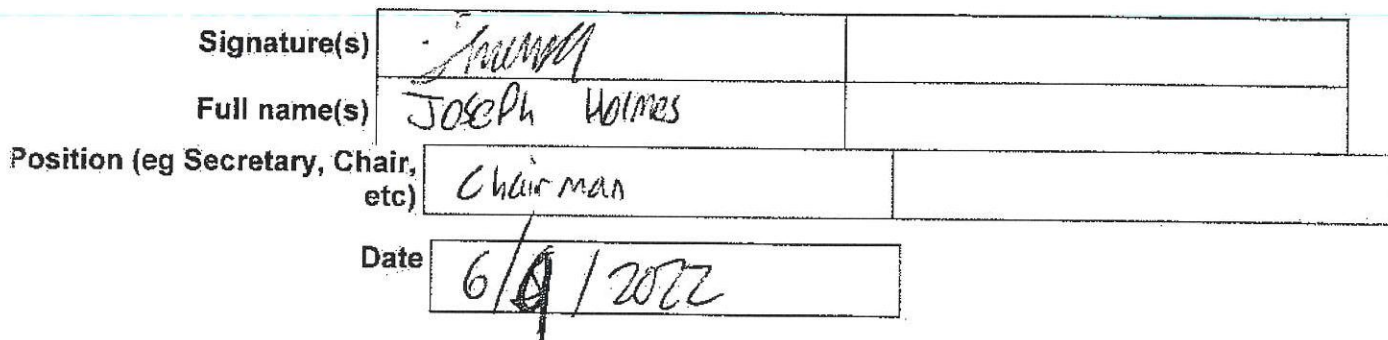 Signature(s)
Full name(s) Joseph Holmes
Position (eg Secretary, Chair,
etc) Chairman
Date 6/ /2022